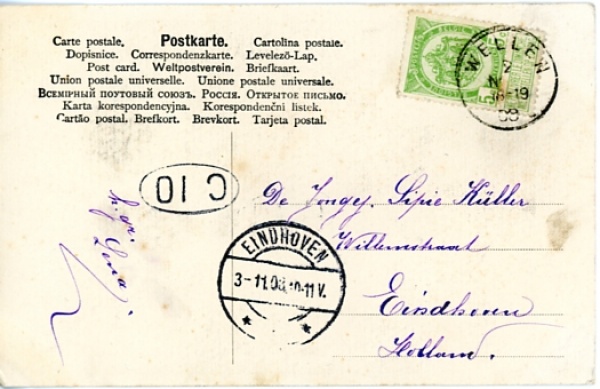 Carte postale. Postkarte. Cartolina postale.
Dopisnice. Correspondenzkarte. Levelező-Lap.
Post card. Weltpostverein. Briefkaart.
Union postale universelle. Unione postale universale.
Всемірный почтовый союзъ. Россія. Открытое письмо.
Karta korespondencyjna. Korespondenční listek.
Cartão postal. Brefkort. Brevkort. Tarjeta postal.
5
WELLEN
2
18-19
08
C 10
De Jongej. Sipie Küller
Willemstraat
Eindhoven
Holland.
EINDHOVEN
3-11.08. 10-11 V.
h. gr.
Lena.